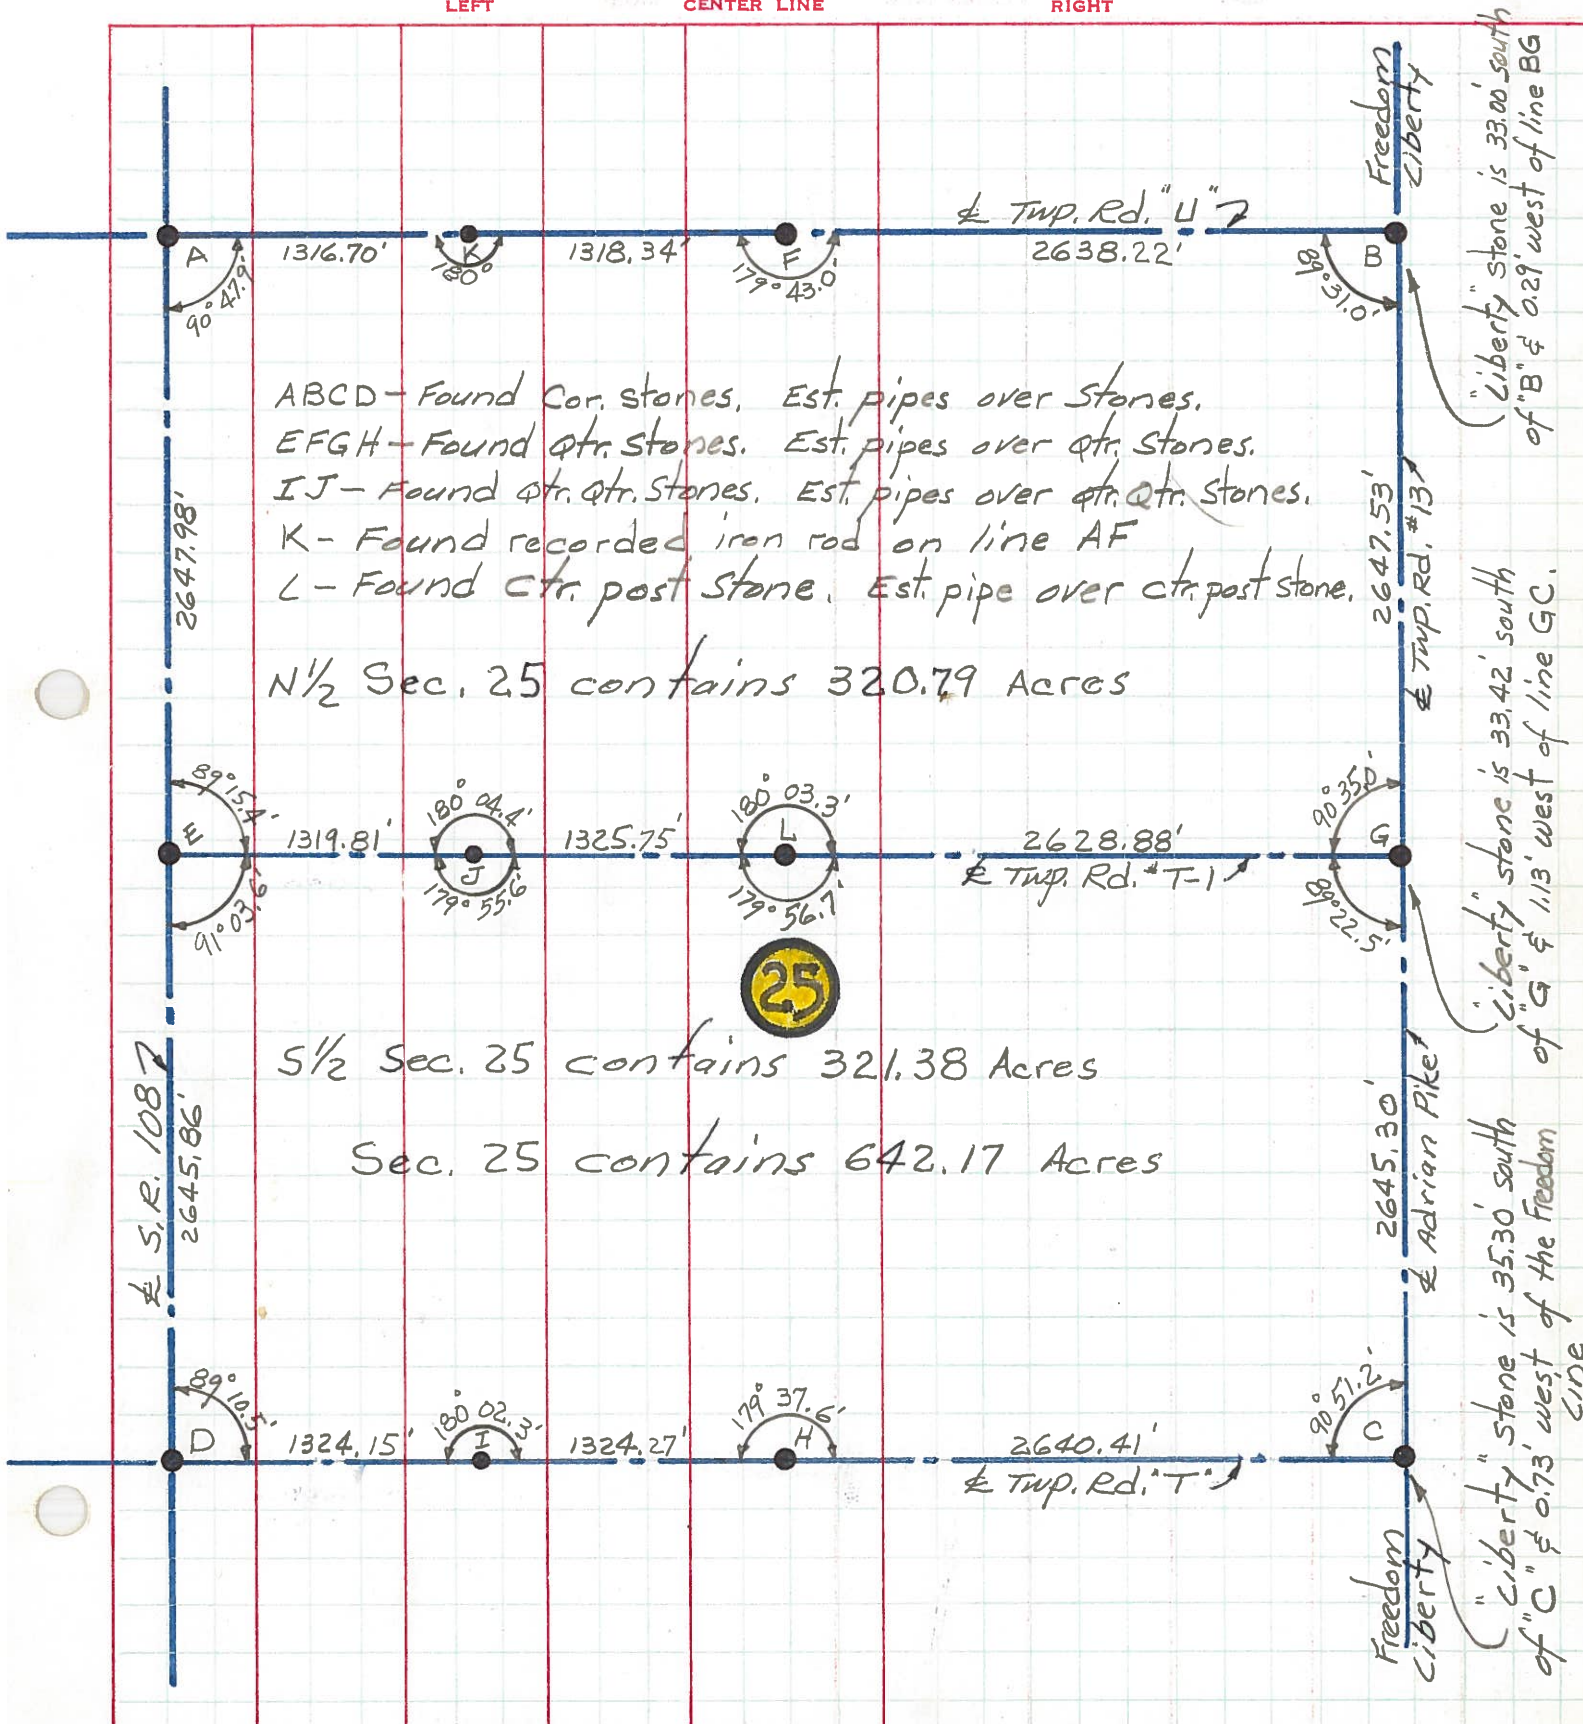 LEFT CENTER LINE RIGHT
Freedom
Liberty
"Liberty" stone is 33.00' south
of "B" & 0.29' west of line BG
℄ Twp. Rd. "U"
A 1316.70' K 1318.34' F 2638.22' B
90° 47.9'
180°
179° 43.0'
89° 31.0'
ABCD - Found Cor. stones. Est. pipes over Stones.
EFGH - Found Qtr. Stones. Est. pipes over Qtr. Stones.
IJ - Found Qtr. Qtr. Stones. Est. pipes over Qtr. Qtr. Stones.
K - Found recorded iron rod on line AF
L - Found Ctr. post Stone. Est. pipe over ctr. post stone.
2647.98'
2647.53'
℄ Twp. Rd. #13
N 1/2 Sec. 25 contains 320.79 Acres
"Liberty" stone is 33.42' south
of "G" & 1.13' west of line GC.
89° 15.4'
180° 04.4'
180° 03.3'
90° 35.0'
E 1319.81' J 1325.75' L 2628.88' G
℄ Twp. Rd. "T-1
91° 03.6'
179° 55.6'
179° 56.7'
89° 22.5'
25
S 1/2 Sec. 25 contains 321.38 Acres
Sec. 25 contains 642.17 Acres
℄ S.R. 108
2645.86'
2645.30'
℄ Adrian Pike
"Liberty" stone is 35.30' south
of "C" & 0.73' west of the Freedom
Line
89° 10.5'
180° 02.3'
179° 37.6'
90° 51.2'
D 1324.15' I 1324.27' H 2640.41' C
℄ Twp. Rd. "T"
Freedom
Liberty